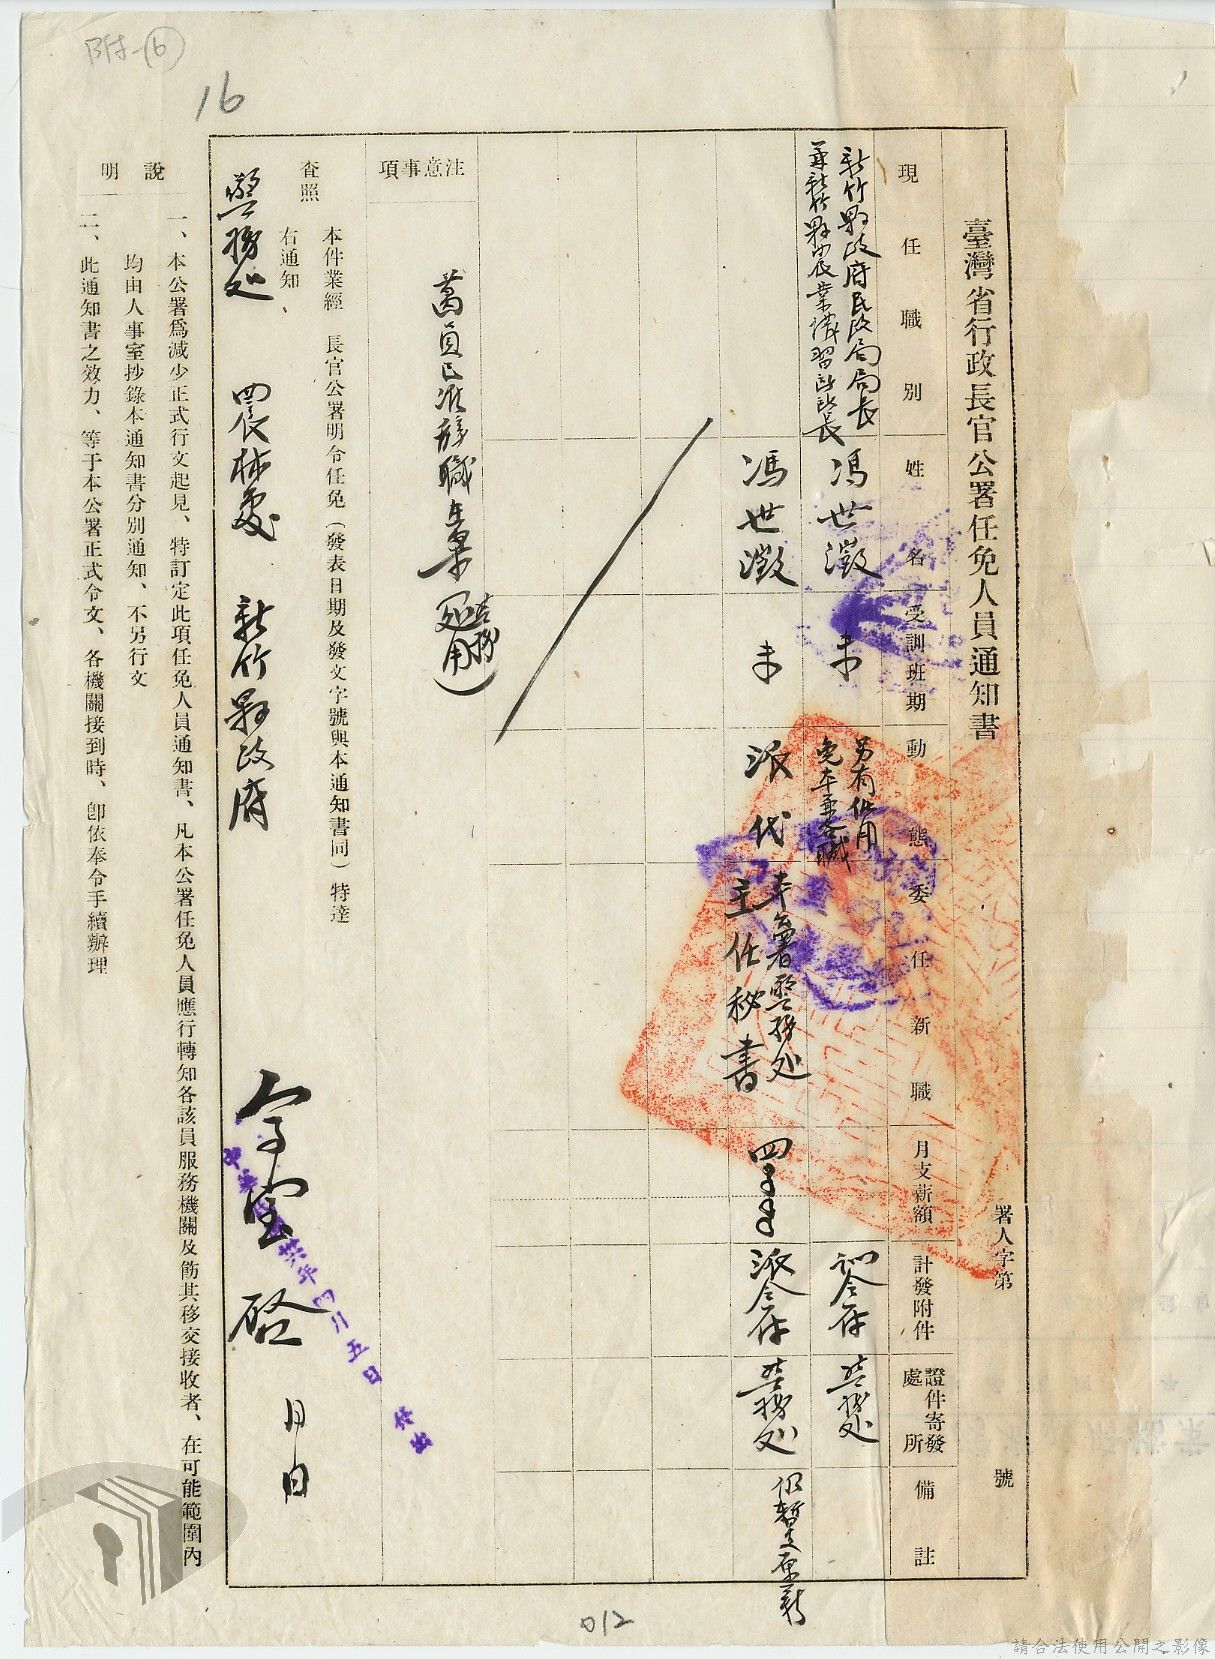 附-(6)
16
臺灣省行政長官公署任免人員通知書
署人字第 號
現任職別
姓名
受訓班期
動態
委任新職
月支薪額
計發附件
證件寄發處所
備註
新竹縣政府民政局局長
兼新竹縣農業講習所所長
馮世澂
未
另有任用
免本兼各職
訓令存
警務处
馮世澂
未
派代
本署警務处
主任秘書
四
派令存
警務处
仍暫支原薪
注意事項
萬員已准辭職
本件業經 長官公署明令任免(發表日期及發文字號與本通知書同)特達
查照
右通知
警務处 農林處 新竹縣政府
啟 月 日
四月五日
說明
一、本公署爲減少正式行文起見、特訂定此項任免人員通知書、凡本公署任免人員應行轉知各該員服務機關及飭其移交接收者、在可能範圍內
均由人事室抄錄本通知書分別通知、不另行文
二、此通知書之效力、等于本公署正式令文、各機關接到時、卽依奉令手續辦理
012
請合法使用公開之影像